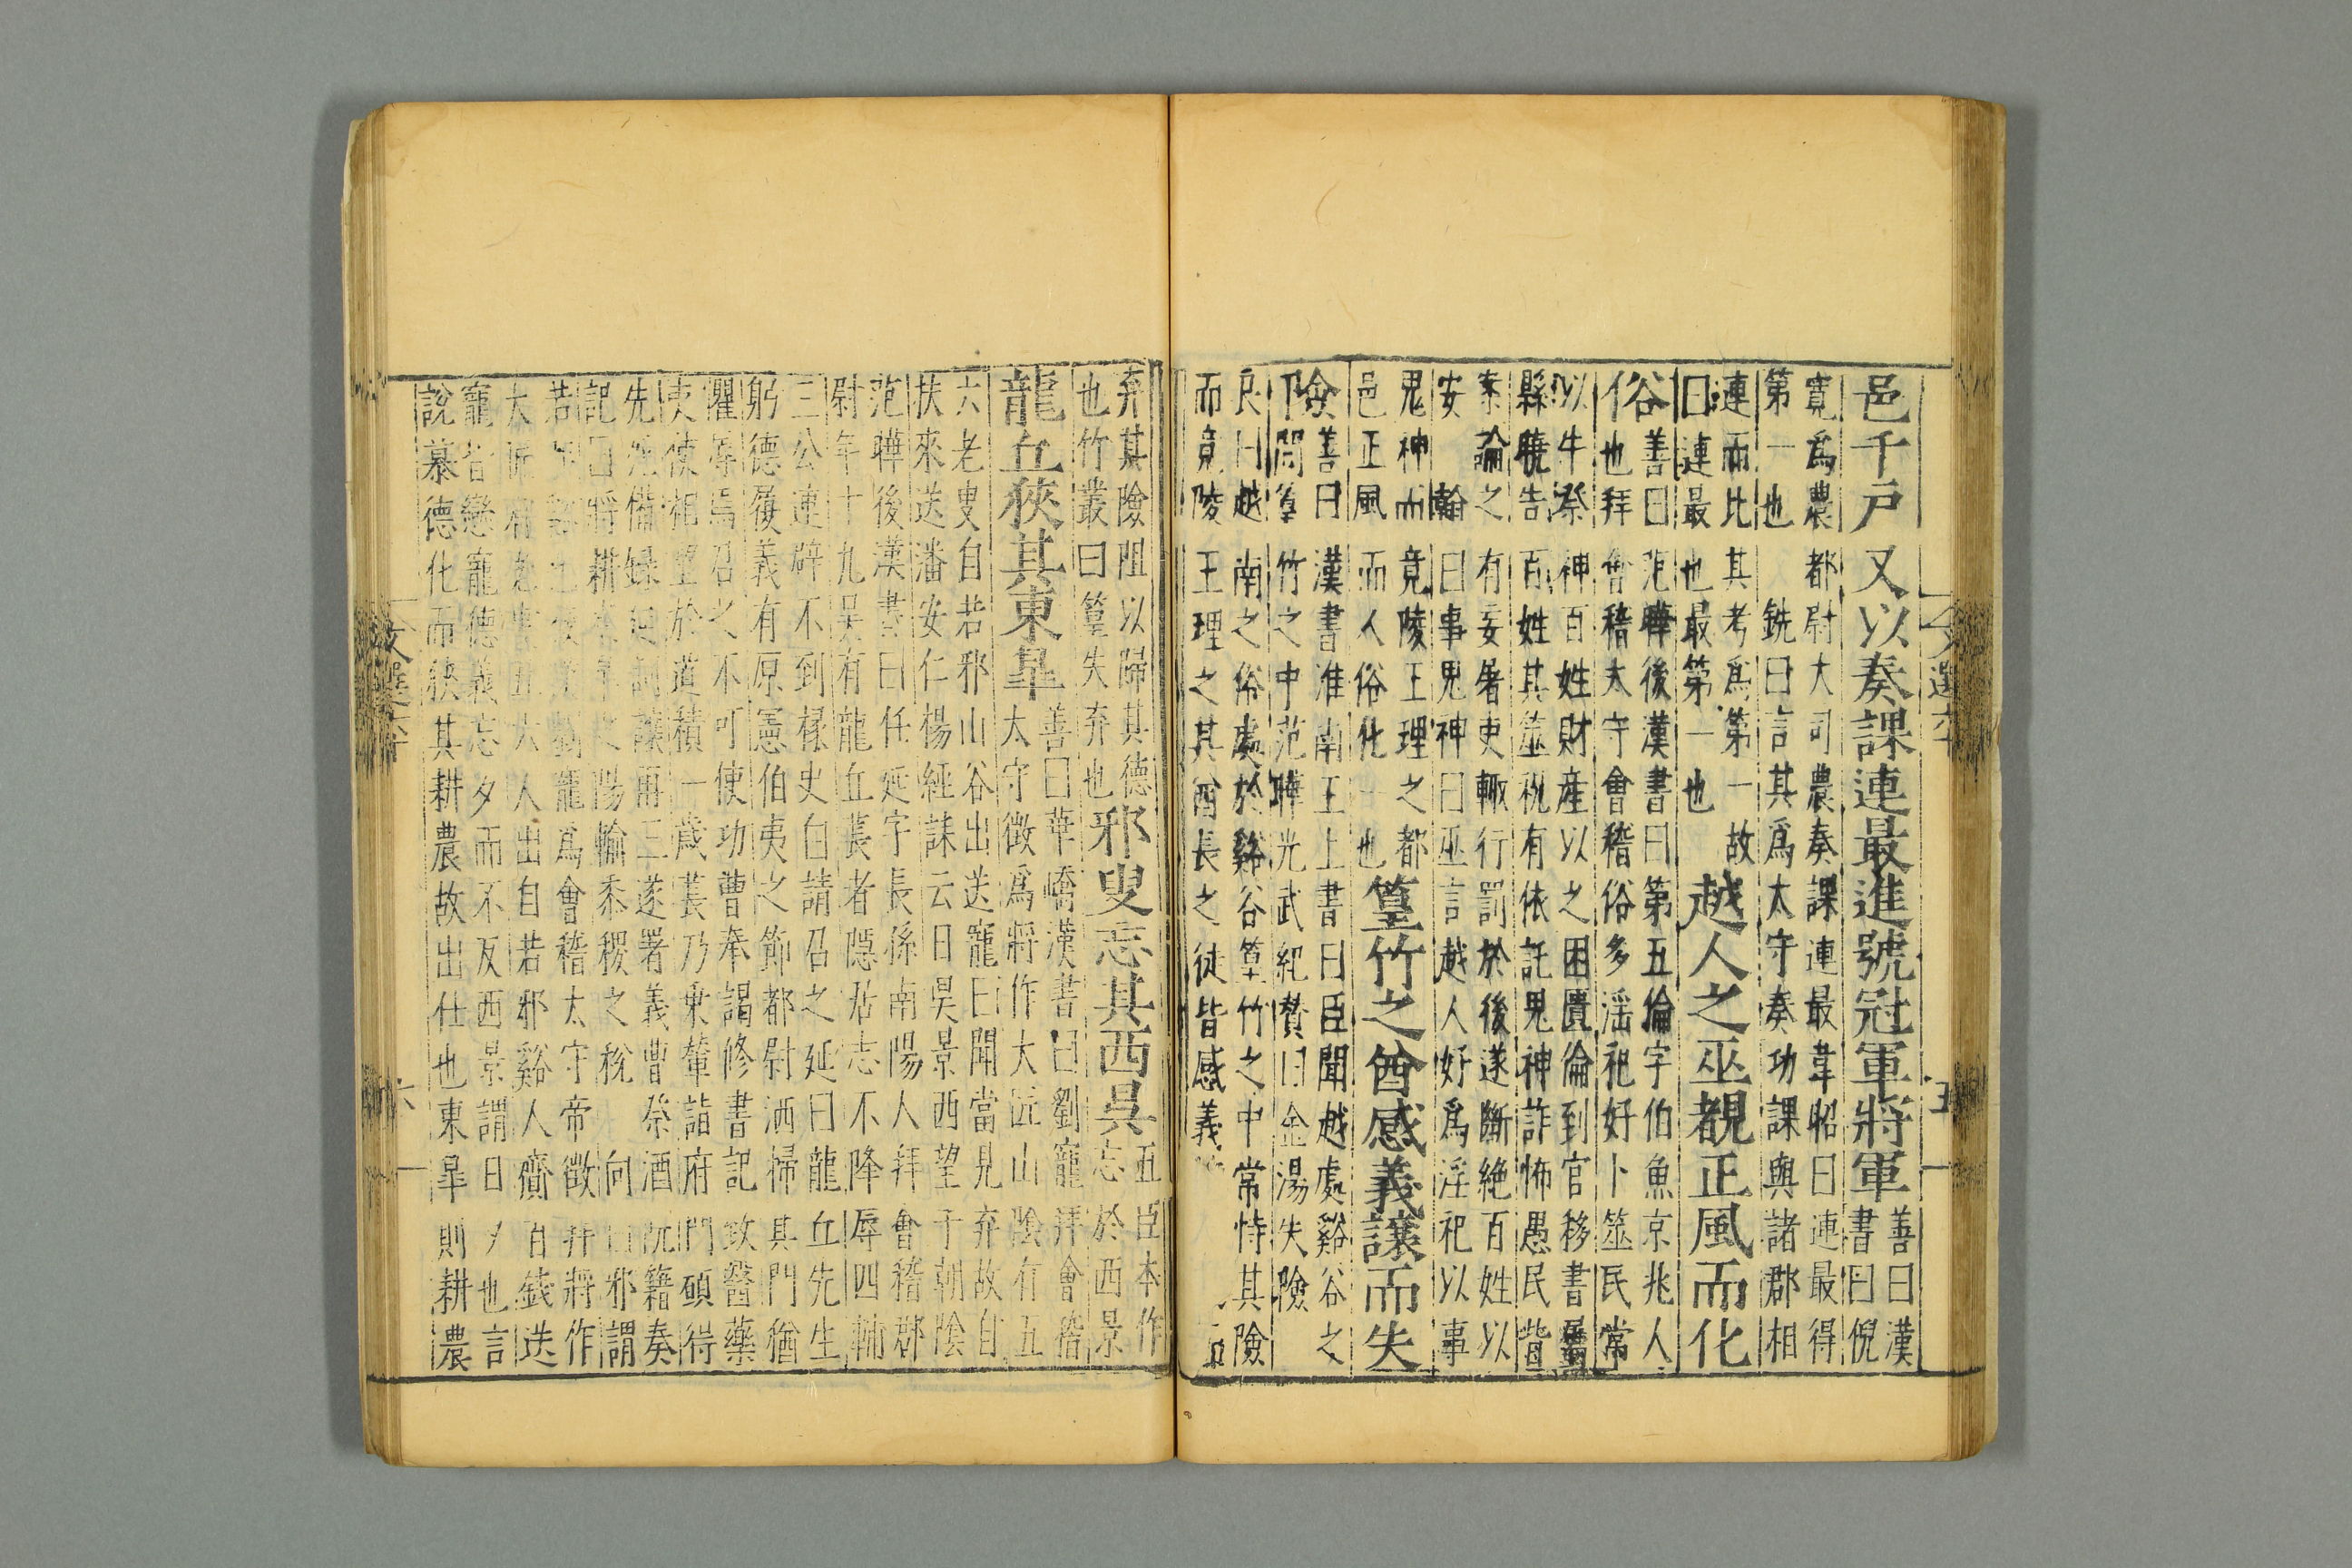 邑千戸又以奏課連最進號冠軍將軍善曰漢書曰倪
寛爲農都尉大司農奏課連最韋昭曰連最得
第一也銑曰言其爲太守奏功課與諸郡相
連而比其考爲第一故
曰連最也最第一也越人之巫覩正風而化
俗善曰范曄後漢書曰第五倫字伯魚京兆人
也拜會稽太守會稽俗多淫祀好卜筮民常
以牛祭神百姓財産以之困匱倫到官移書屬
縣曉告百姓其筮祝有依託鬼神詐怖愚民皆
案論之有妄屠吏輙行罰於後遂斷絶百姓以
安翰曰事鬼神曰巫言越人好爲淫祀以事
鬼神而竟陵王理之都
邑正風而人俗化也篁竹之酋感義讓而失
險善曰漢書淮南王上書曰臣聞越處谿谷之
間篁竹之中范曄光武紀贊曰金湯失險
良曰越南之俗處於谿谷篁竹之中常恃其險
而竟陵王理之其酋長之徒皆感義
弃其險阻以歸其德
也竹叢曰篁失弃也邪叟忘其西具五臣本作忘於西景
龍丘狹其東皐善曰華嶠漢書曰劉寵拜會稽
太守徵爲將作大匠山隂有五
六老叟自若邪山谷出送寵曰聞當見弃故自
扶來送潘安仁楊經誄云日昃景西望子朝隂
范曄後漢書曰任延字長孫南陽人拜會稽郡
尉年十九吴有龍丘萇者隠居志不降辱四輔
三公連辟不到椽史白請召之延曰龍丘先生
躬德履義有原憲伯夷之節都尉洒掃其門猶
懼辱焉召之不可使功曹奉謁修書記致醫藥
吏使相望於道積一歳萇乃乗輦詣府門碩得
先死備録延辭讓再三遂署義曹祭酒阮籍奏
記曰將耕東皐之陽輸黍稷之稅向曰邪謂
若邪谿也後漢劉寵爲會稽太守帝徵拜將作
大匠有老叟五六人出自若邪谿人齎百錢送
寵皆戀寵德義忘夕而不反西景謂日夕也言
說慕德化而狹其耕農故出仕也東皐則耕農